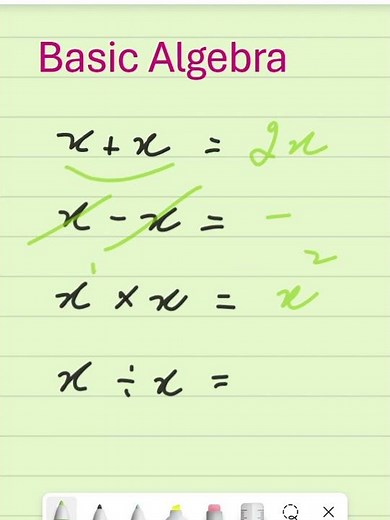 Basic Algebra
x + x = 2x
x - x = -
x¹ × x = x²
x ÷ x =